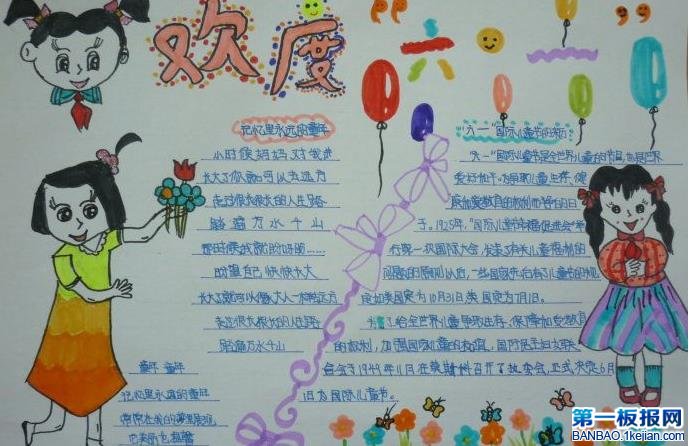 欢度"六一"
记忆里永远的童年
小时候妈妈对我说
长大了你就可以去远方
走过很长很长的人生路
踏遍万水千山
那时候我就好好的……
盼望自己快快长大
长大了就可以像大人一样去远方
走过很长很长的人生路
踏遍万水千山
童年 童年
记忆里永远的童年
常常在我的梦里展现
"六一"国际儿童节的来历
"六一"国际儿童节是全世界儿童的节日,也是世界
于。1925年,"国际儿童幸福促进会"举
行第一次国际大会,发表了有关儿童福利的
定如英国定为10月31日,美国定为7月1日。
为了给全世界儿童争取生存、保障和受教育
的权利,加强国际儿童的友谊,国际民主妇女联
合会于1949年11月在莫斯科召开了执委会,正式决定6月
1日为国际儿童节。
第一板报网
BANBAO.1kejian.com